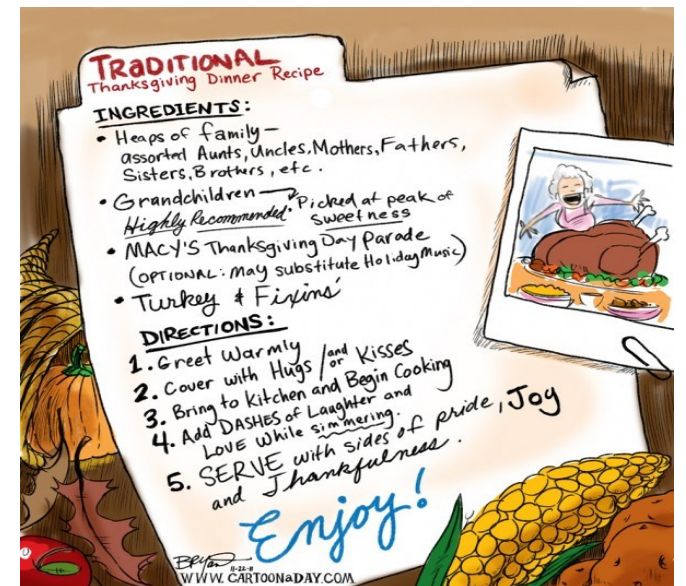 TRADITIONAL
Thanksgiving Dinner Recipe
INGREDIENTS:
• Heaps of family –
assorted Aunts, Uncles, Mothers, Fathers,
Sisters, Brothers, etc.
• Grandchildren – Picked at peak of
Highly Recommended. sweetness
• MACY'S Thanksgiving Day Parade
(OPTIONAL: may substitute Holiday Music)
• Turkey & Fixins'
DIRECTIONS:
1. Greet Warmly
2. Cover with Hugs and/or Kisses
3. Bring to Kitchen and Begin Cooking
4. Add DASHES of Laughter and
LOVE While simmering.
5. SERVE with sides of pride, Joy
and Thankfulness.
Enjoy!
BRYAN
11-22-11
WWW.CARTOONADAY.COM